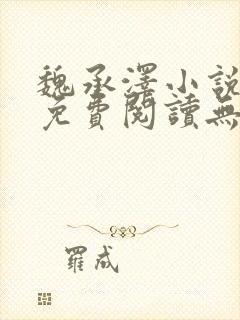 魏承澤小説
免費閱讀無
羅成